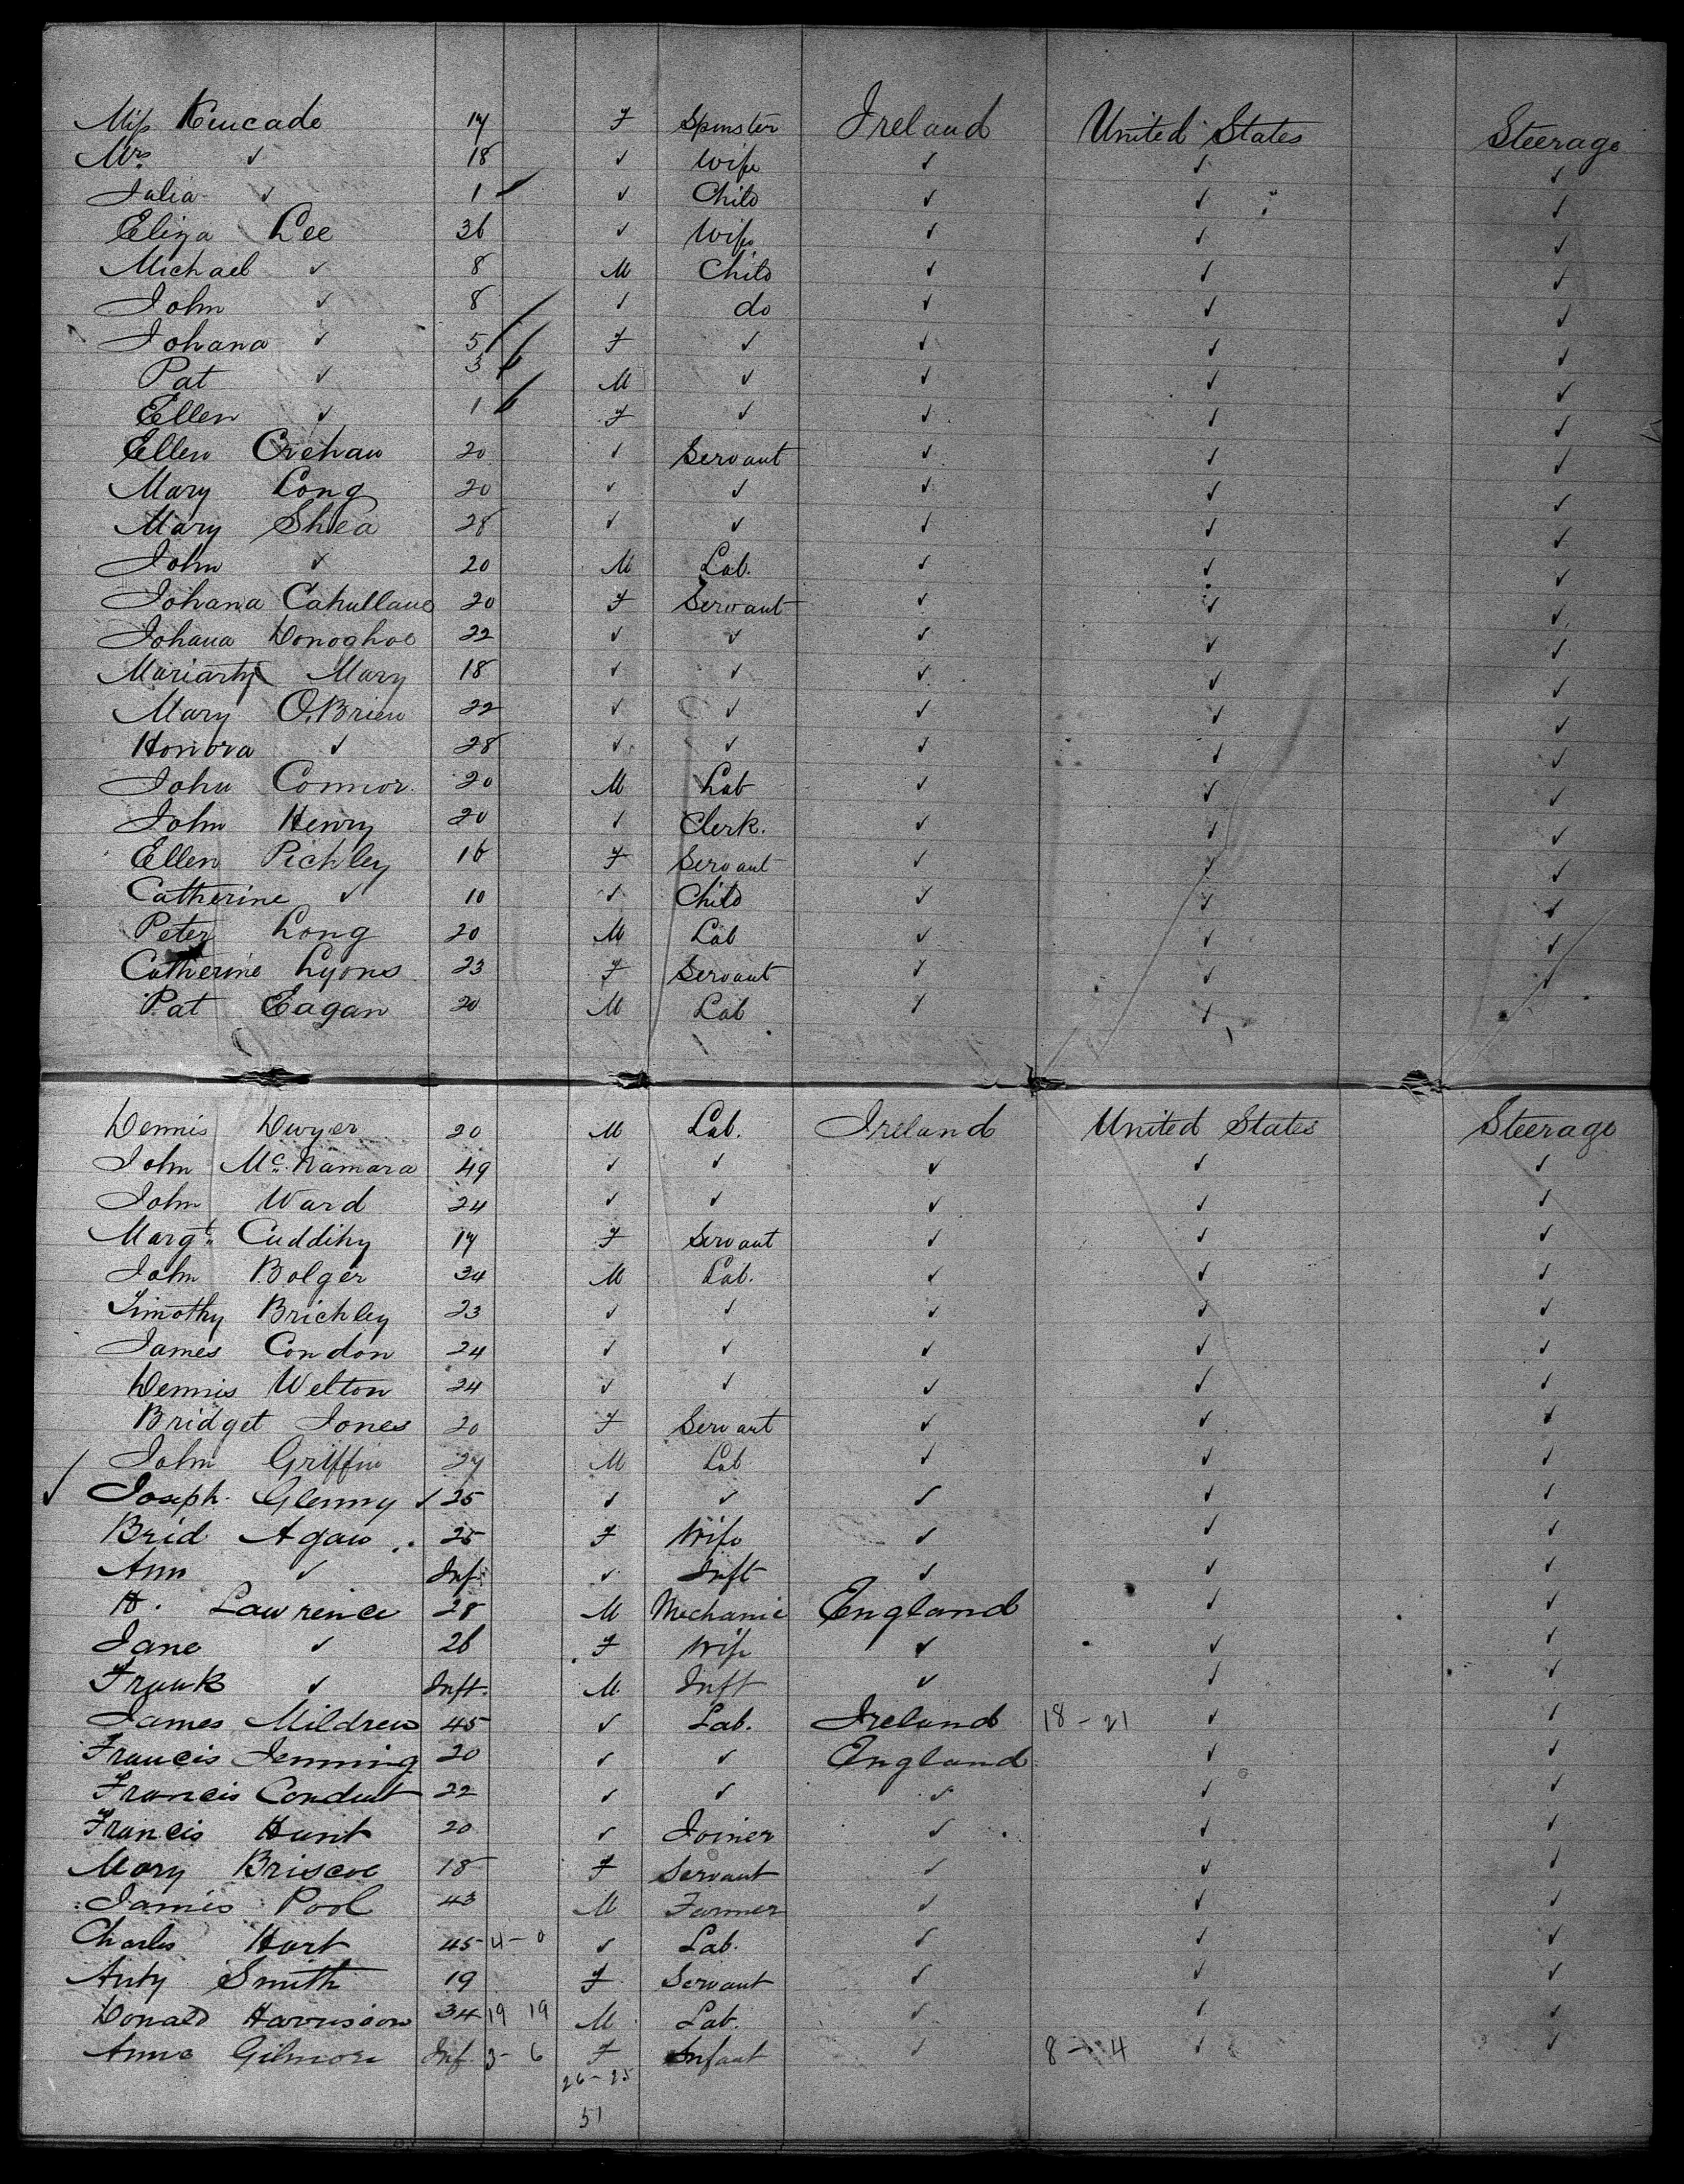 Miss Kincade 17 F Spinster Ireland United States Steerage
Mrs ✓ 18 ✓ Wife ✓ ✓ ✓
Julia ✓ 1 ✓ Child ✓ ✓ ✓
Eliza Lee 36 ✓ Wife ✓ ✓ ✓
Michael ✓ 8 M Child ✓ ✓ ✓
John ✓ 8 ✓ do ✓ ✓ ✓
Johana ✓ 5 F ✓ ✓ ✓ ✓
Pat ✓ 3 M ✓ ✓ ✓ ✓
Ellen ✓ 1 F ✓ ✓ ✓ ✓
Ellen Crehan 20 ✓ Servant ✓ ✓ ✓
Mary Long 20 ✓ ✓ ✓ ✓ ✓
Mary Shea 28 ✓ ✓ ✓ ✓ ✓
John ✓ 20 M Lab. ✓ ✓ ✓
Johana Cahullane 20 F Servant ✓ ✓ ✓
Johana Donoghoe 22 ✓ ✓ ✓ ✓ ✓
Moriarty Mary 18 ✓ ✓ ✓ ✓ ✓
Mary O'Brien 22 ✓ ✓ ✓ ✓ ✓
Honora ✓ 28 ✓ ✓ ✓ ✓ ✓
John Connor. 20 M Lab ✓ ✓ ✓
John Henry 20 ✓ Clerk. ✓ ✓ ✓
Ellen Pichley 16 F Servant ✓ ✓ ✓
Catherine ✓ 10 ✓ Child ✓ ✓ ✓
Peter Long 20 M Lab ✓ ✓ ✓
Catherine Lyons 23 F Servant ✓ ✓ ✓
Pat Eagan 20 M Lab ✓ ✓
Dennis Dwyer 20 M Lab. Ireland United States Steerage
John McNamara 49 ✓ ✓ ✓ ✓ ✓
John Ward 24 ✓ ✓ ✓ ✓ ✓
Margt. Cuddihy 17 F Servant ✓ ✓ ✓
John Bolger 34 M Lab. ✓ ✓ ✓
Timothy Brichley 23 ✓ ✓ ✓ ✓ ✓
James Condon 24 ✓ ✓ ✓ ✓ ✓
Dennis Welton 24 ✓ ✓ ✓ ✓ ✓
Bridget Jones 20 F Servant ✓ ✓ ✓
John Griffin 27 M Lab ✓ ✓ ✓
✓ Joseph Glenny ✓ 25 ✓ ✓ ✓ ✓ ✓
Brid Agan 25 F Wife ✓ ✓ ✓
Ann ✓ Inf. ✓ Inft ✓ ✓ ✓
H. Lawrence 28 M Mechanic England ✓ ✓
Jane ✓ 26 F Wife ✓ ✓ ✓
Frank ✓ Inft. M Inft ✓ ✓ ✓
James Mildrew 45 ✓ Lab. Ireland 18-21 ✓ ✓
Francis Jenning 20 ✓ ✓ England ✓ ✓
Francis Conduit 22 ✓ ✓ ✓ ✓ ✓
Francis Hunt 20 ✓ Joiner ✓ ✓ ✓
Mary Briscoe 18 F Servant ✓ ✓ ✓
James Pool 43 M Farmer ✓ ✓ ✓
Charles Hart 45 4-0 ✓ Lab. ✓ ✓ ✓
Smith 19 F Servant ✓ ✓ ✓
Donald Harrison 34 19 19 M Lab. ✓ ✓ ✓
Anne Gilmore Inf. 3-6 F Infant ✓ 8-4 ✓ ✓
26-25
51